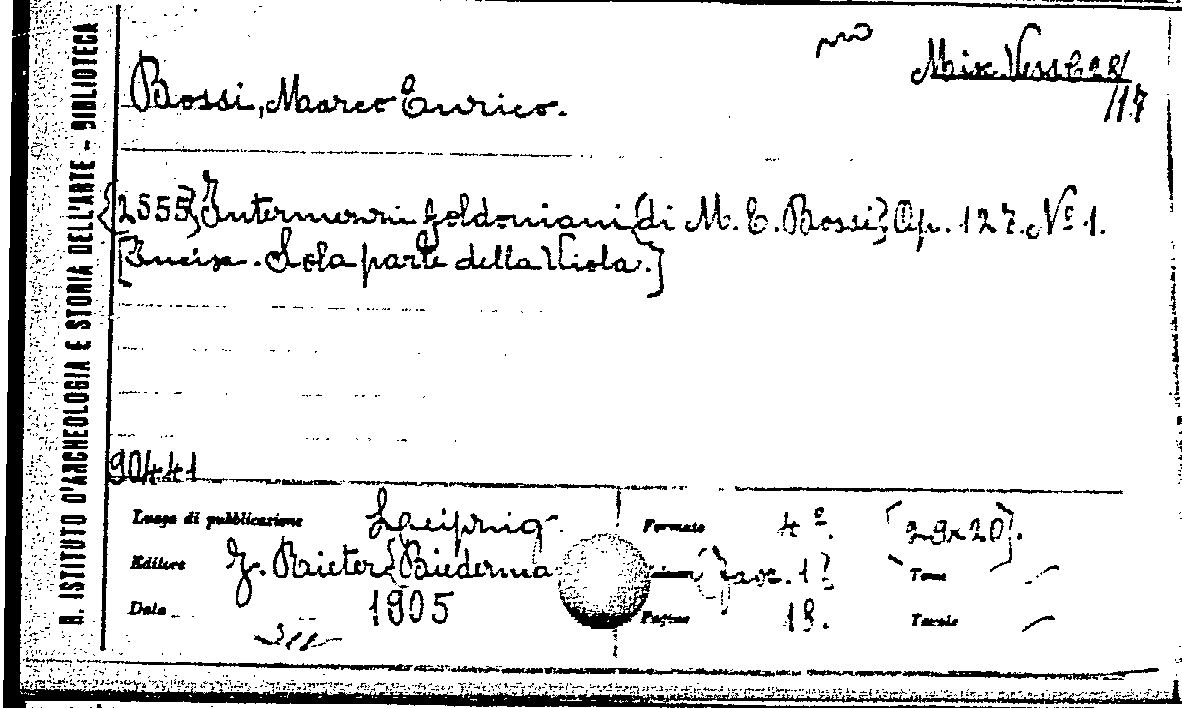 R. ISTITUTO D'ARCHEOLOGIA E STORIA DELL'ARTE - BIBLIOTECA
Misc. Vess. C 28/
/17
Bossi, Marco Enrico.
{2555} Intermezzi Goldoniani {di M. E. Bossi} Op. 127. Nº 1.
[Incis. Sola parte della Viola.]
90441
Luogo di pubblicazione Leipzig Formato 4º. [29x20].
Editore J. Rieter {Biederma {fasc. 1} Tomi
Data 1905 Pagine 13. Tavole